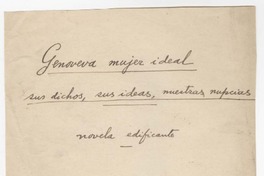 Genoveva mujer ideal
sus dichos, sus ideas, nuestras nupcias
novela edificante